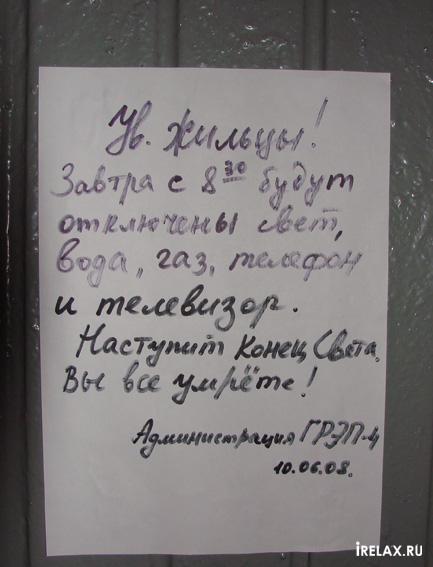 Ув. Жильцы!
Завтра с 8 30 будут
отключены свет,
вода, газ, телефон
и телевизор.
Наступит Конец Света.
Вы все умрёте!
Администрация ГРЭП-4
10.06.08.
iRELAX.RU